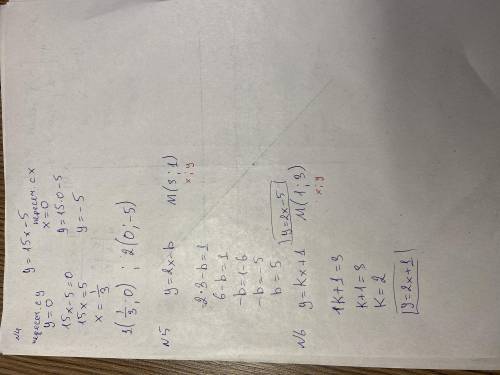 №4
y = 15x - 5
пересеч. с y
y = 0
15x - 5 = 0
15x = 5
x = 1/3
пересеч. с x
x = 0
y = 15·0 - 5
y = -5
1(1/3; 0) ; 2(0; -5)
№5
y = 2x - b
M(3; 1)
x; y
2·3 - b = 1
6 - b = 1
-b = 1 - 6
-b = -5
b = 5
y = 2x - 5
№6
y = kx + 1
M(1; 3)
x; y
1k + 1 = 3
k + 1 = 3
k = 2
y = 2x + 1